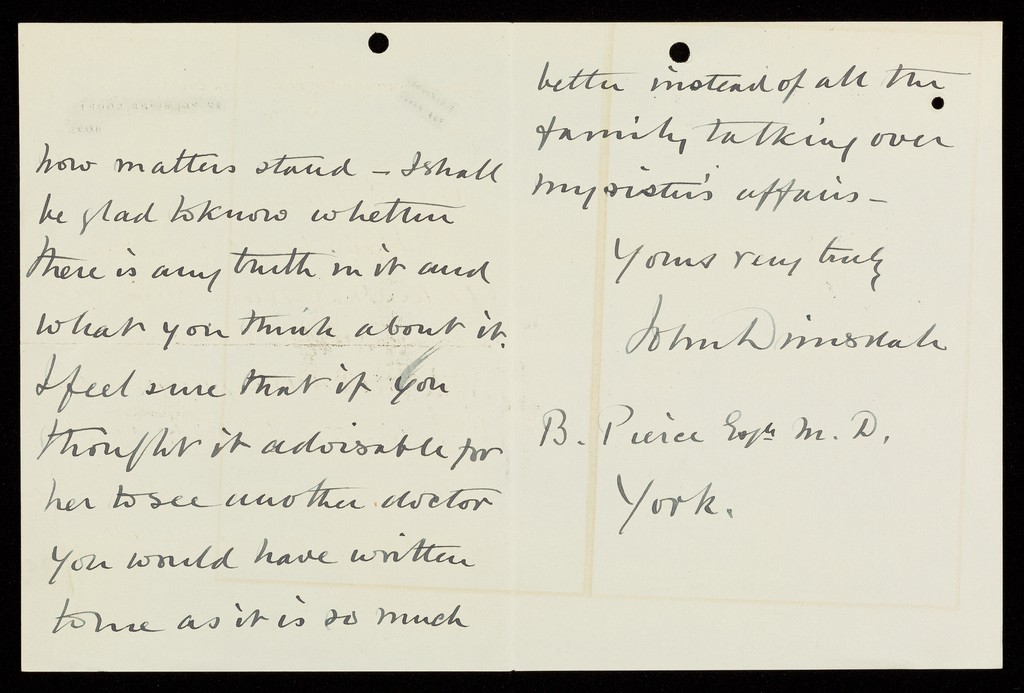 how matters stand – I shall
be glad to know whether
there is any truth in it and
what you think about it.
I feel sure that if you
thought it advisable for
her to see another doctor
you would have written
to me as it is so much
better instead of all the
family talking over
my sister's affairs –
Yours very truly
John Dimsdale
B. Pierce Esqre M. D.
York.